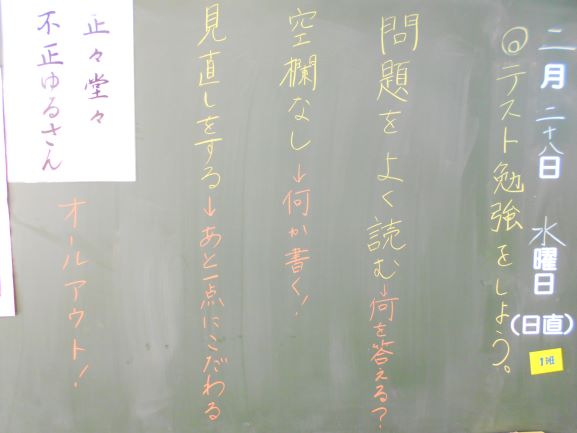 二月二十八日 水曜日
(日直)
1班
◎テスト勉強をしよう。
問題をよく読む→何を答える?
空欄なし→何か書く!
見直しをする→あと一点にこだわる
正々堂々
不正ゆるさん
オールアウト!